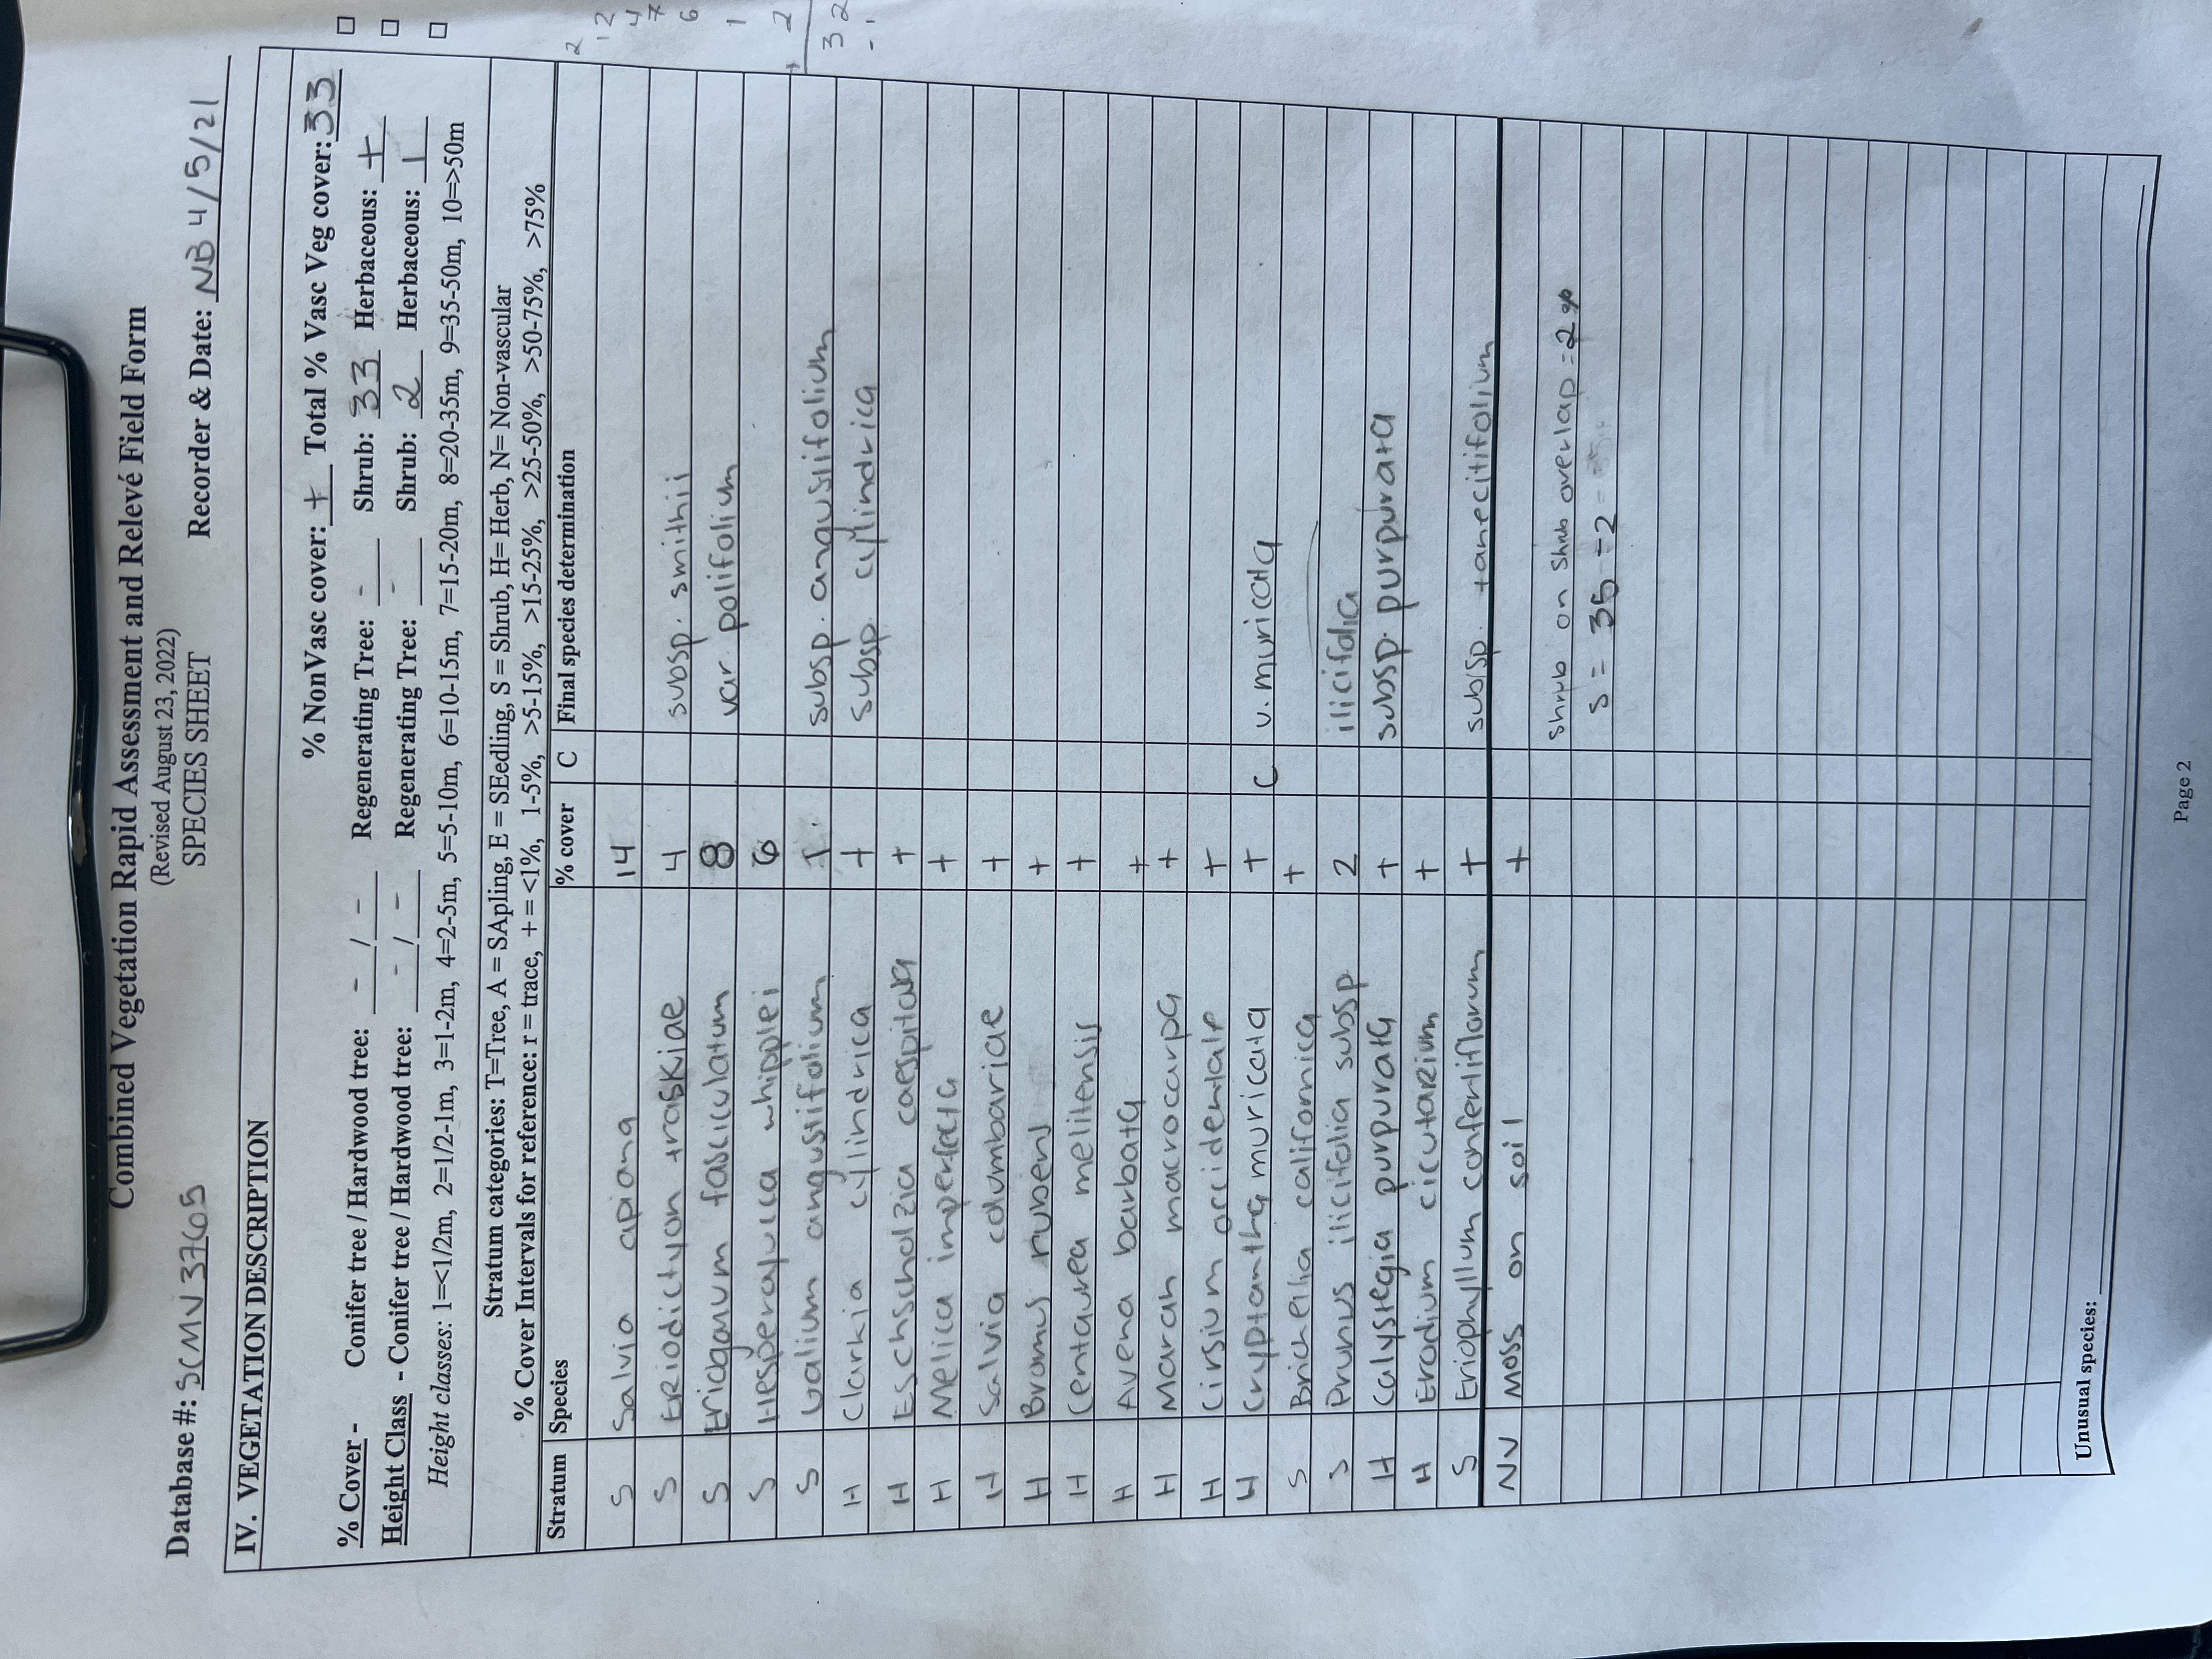 Combined Vegetation Rapid Assessment and Relevé Field Form
(Revised August 23, 2022)
SPECIES SHEET
Database #: SCMV37605 Recorder & Date: NB 4/5/21
IV. VEGETATION DESCRIPTION
% NonVasc cover: + Total % Vasc Veg cover: 33
% Cover - Conifer tree / Hardwood tree: - / - Regenerating Tree: - Shrub: 33 Herbaceous: +
Height Class - Conifer tree / Hardwood tree: - / - Regenerating Tree: - Shrub: 2 Herbaceous: 1
Height classes: 1=<1/2m, 2=1/2-1m, 3=1-2m, 4=2-5m, 5=5-10m, 6=10-15m, 7=15-20m, 8=20-35m, 9=35-50m, 10=>50m
Stratum categories: T=Tree, A = SApling, E = SEedling, S = Shrub, H= Herb, N= Non-vascular
% Cover Intervals for reference: r = trace, + = <1%, 1-5%, >5-15%, >15-25%, >25-50%, >50-75%, >75%
Stratum Species % cover C Final species determination
S Salvia apiana 14
S Eriodictyon traskiae 4 subsp. smithii
S Eriogonum fasciculatum 8 var. polifolium
S Hesperoyucca whipplei 6
S Galium angustifolium 1 subsp. angustifolium
H Clarkia cylindrica + subsp. cylindrica
H Eschscholzia caespitosa +
H Melica imperfecta +
H Salvia columbariae +
H Bromus rubens +
H Centaurea melitensis +
H Avena barbata +
H Marah macrocarpa +
H Cirsium occidentale +
H Cryptantha muricata + C v. muricata
S Brichellia californica +
S Prunus ilicifolia subsp 2 ilicifolia
H Calystegia purpurata + subsp. purpurata
H Erodium cicutarium +
S Eriophyllum confertiflorum + subsp. tanecitifolium
NV Moss on soil +
shrub on shrub overlap = 2%
S = 35 - 2 =
Unusual species:
Page 2
2
12
4
7
6
1
+ 2
32